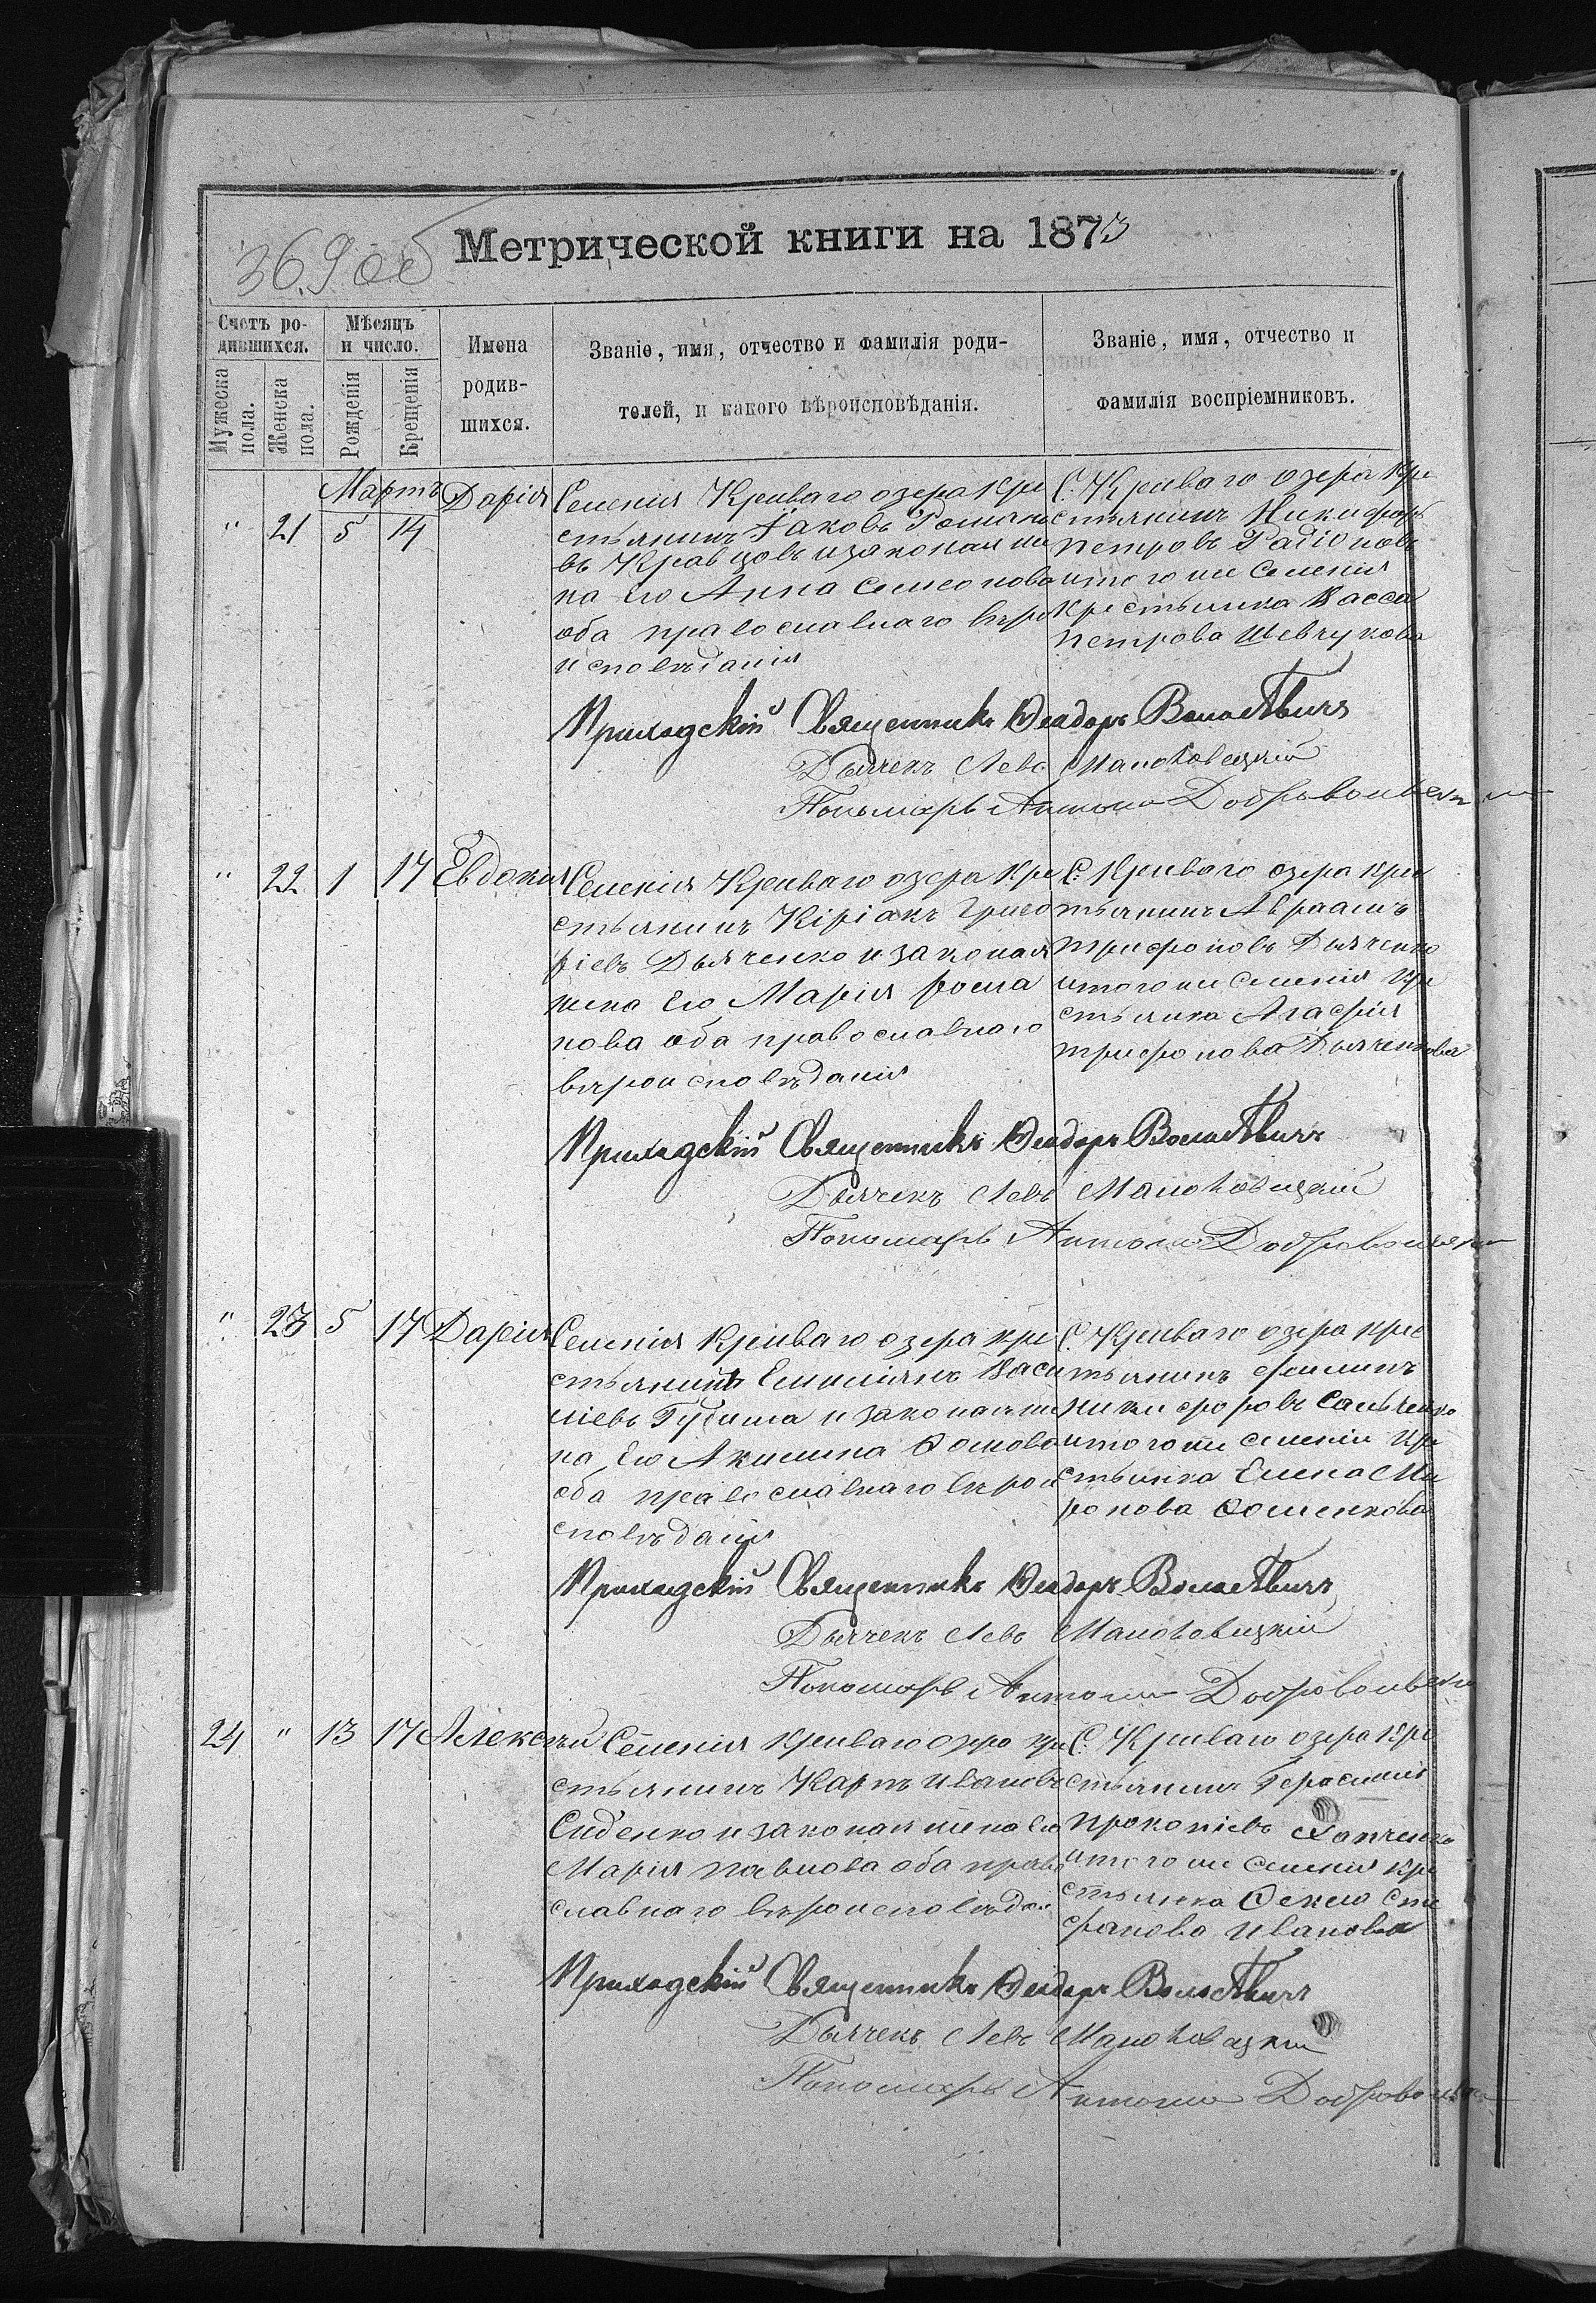 369 об
Метрической книги на 1873
Счетъ ро-
дившихся.
Мужеска
пола.
Женска
пола.
Мѣсяцъ
и число.
Рожденія
Крещенія
Имена
родив-
шихся.
Званіе, имя, отчество и фамилія роди-
телей, и какого вѣроисповѣданія.
Званіе, имя, отчество и
фамилія воспріемниковъ.
Мартъ
" 21 5 14 Дарія
Селенія Криваго озера кре
стьянинъ Іаковъ Романо
въ Кравцовъ и законая же
на его Анна Семеонова
оба православнаго вѣро
исповѣданія
С. Криваго озера кре
стьянинъ Никифоръ
Петровъ Радіоновъ
и того же селенія
крестьянка Васса
Петрова Шевчукова
Приходскій Священникъ Феодоръ
Дьячекъ Левъ
Пономарь Антоній
" 22 1 17 Евдокія
Селенія Криваго озера кре
стьянинъ Киріакъ Григо
ріевъ Дьяченко и законая
жена его Марія Рома
нова оба православнаго
вѣроисповѣданія
С. Криваго озера крес
тьянинъ Авраамъ
Трифоновъ Дьяченко
и того же селенія кре
стьянка Агафія
Трифонова Дьяченкова
Приходскій Священникъ Феодоръ
Дьячекъ Левъ
Пономарь Антоній
" 23 5 17 Дарія
Селенія Криваго озера кре
стьянинъ Емиліянъ Васи
ліевъ Гудыма и законая же
на его Акилина Фомова
оба православнаго вѣрои
сповѣданія
С. Криваго озера крес
тьянинъ Филипъ
Никифоровъ
и того же селенія кре
стьянка Елена Ми
ронова Фоменкова
Приходскій Священникъ Феодоръ
Дьячекъ Левъ
Пономарь Антоній
24 " 13 17 Алексѣй
Селенія Криваго озера кре
стьянинъ Карпъ Ивановъ
Сиденко и законая жена его
Марія Павлова оба право
славнаго вѣроисповѣдан.
С. Криваго озера кре
стьянинъ Герасимъ
Прокопіевъ
и того же селенія кре
стьянка Фекла Сте
фанова Иванова
Приходскій Священникъ Феодоръ
Дьячекъ Левъ
Пономарь Антоній